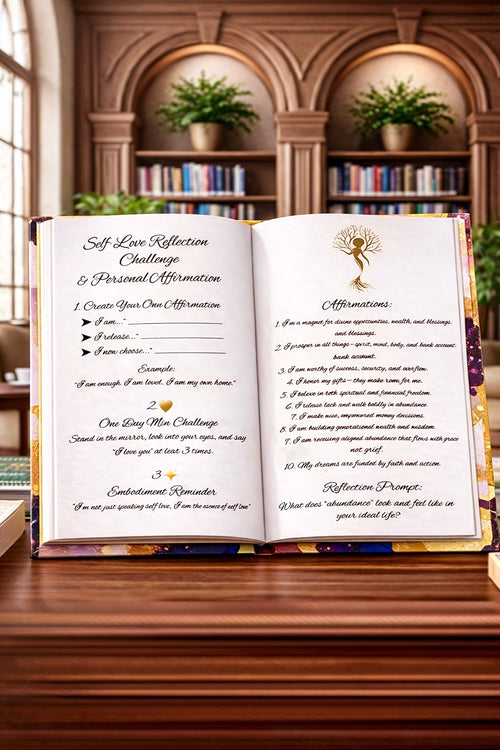 Self Love Reflection
Challenge
& Personal Affirmation
1. Create Your Own Affirmation
➤ I am..."
➤ I release..."
➤ I now choose..."
Example:
"I am enough. I am loved. I am my own home."
2.
One Day Min Challenge
Stand in the mirror, look into your eyes, and say
"I love you" at lear 3 times.
3
Embodiment Reminder
"I'm not just speaking self love, I am the esence of self love"
Affirmations:
1. I'm a magnet for divine opportunties, wealth, and blessings.
and blessings.
2. I prosper in all things—spirit, mind, body, and bank account.
bank account.
3. I am worthy of success, security, and overflow.
4. I honor my gifts—they make room for me.
5. I believe in both spiritual and finnncial freedom.
6. I release lack and walk boldly in abundance.
7. I make wise, empowered money decisions.
8. I am building generational wealth and wisdom.
9. I am receising aligned abundance that flows with grace
not grief.
10. My dreams are funded by faith and action.
Reflection Prompt:
What does "abundance" look and feel like in
your ideal life?